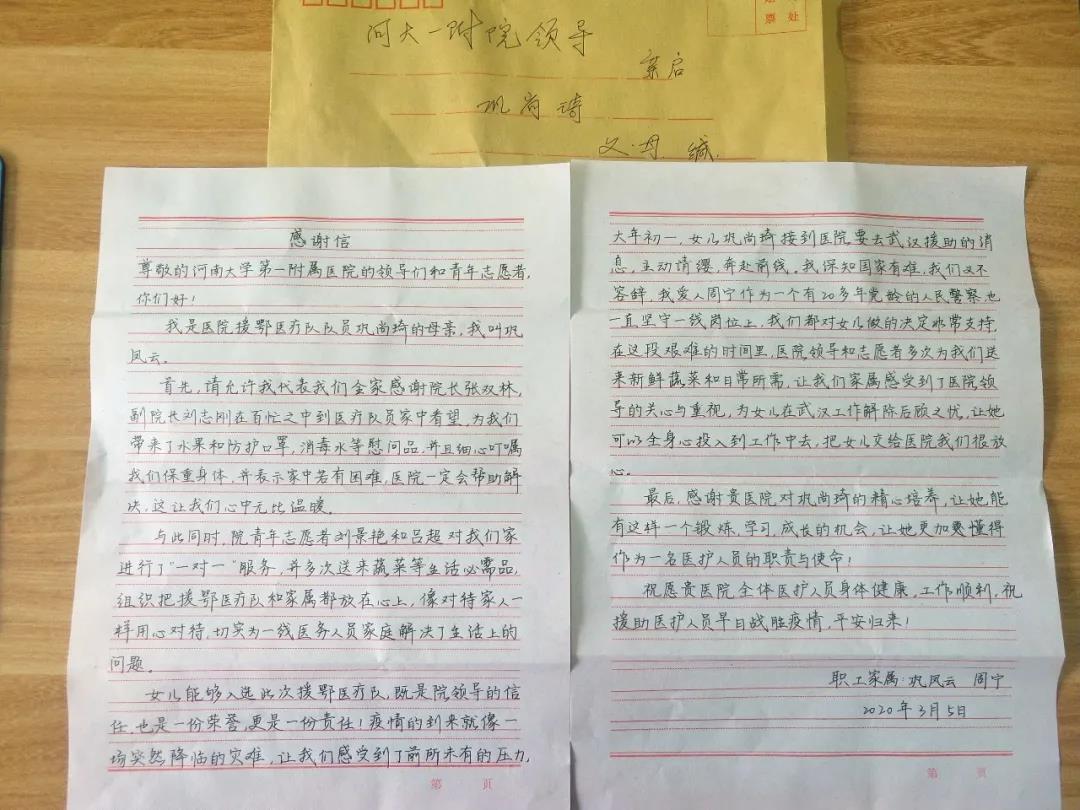 票 处
河大一附院领导
亲启
巩尚琦
父.母 缄.
感谢信
尊敬的河南大学第一附属医院的领导们和青年志愿者,
你们好!
我是医院援鄂医疗队队员巩尚琦的母亲,我叫巩
凤云。
首先,请允许我代表我们全家感谢院长张双林,
副院长刘志刚在百忙之中到医疗队员家中看望,为我们
带来了水果和防护口罩,消毒水等慰问品,并且细心叮嘱
我们保重身体,并表示家中若有困难,医院一定会帮助解
决,这让我们心中无比温暖。
与此同时,院青年志愿者刘景艳和吕超对我们家
进行了"一对一"服务,并多次送来蔬菜等生活必需品,
组织把援鄂医疗队和家属都放在心上,像对待家人一
样用心对待,切实为一线医务人员家庭解决了生活上的
问题。
女儿能够入选此次援鄂医疗队,既是院领导的信
任,也是一份荣誉,更是一份责任!疫情的到来就像一
场突然降临的灾难,让我们感受到了前所未有的压力,
第 页
大年初一,女儿巩尚琦接到医院要去武汉援助的消
息,主动请缨,奔赴前线。我深知国家有难,我们义不
容辞,我爱人周宁作为一个有20多年党龄的人民警察也
一直坚守一线岗位上,我们都对女儿做的决定非常支持,
在这段艰难的时间里,医院领导和志愿者多次为我们送
来新鲜蔬菜和日常所需,让我们家属感受到了医院领
导的关心与重视,为女儿在武汉工作解除后顾之忧,让她
可以全身心投入到工作中去,把女儿交给医院我们很放
心。
最后,感谢贵医院对巩尚琦的精心培养,让她能
有这样一个锻炼,学习,成长的机会,让她更加懂得
作为一名医护人员的职责与使命!
祝愿贵医院全体医护人员身体健康,工作顺利,祝
援助医护人员早日战胜疫情,平安归来!
职工家属:巩凤云 周宁
2020年3月5日
第 页